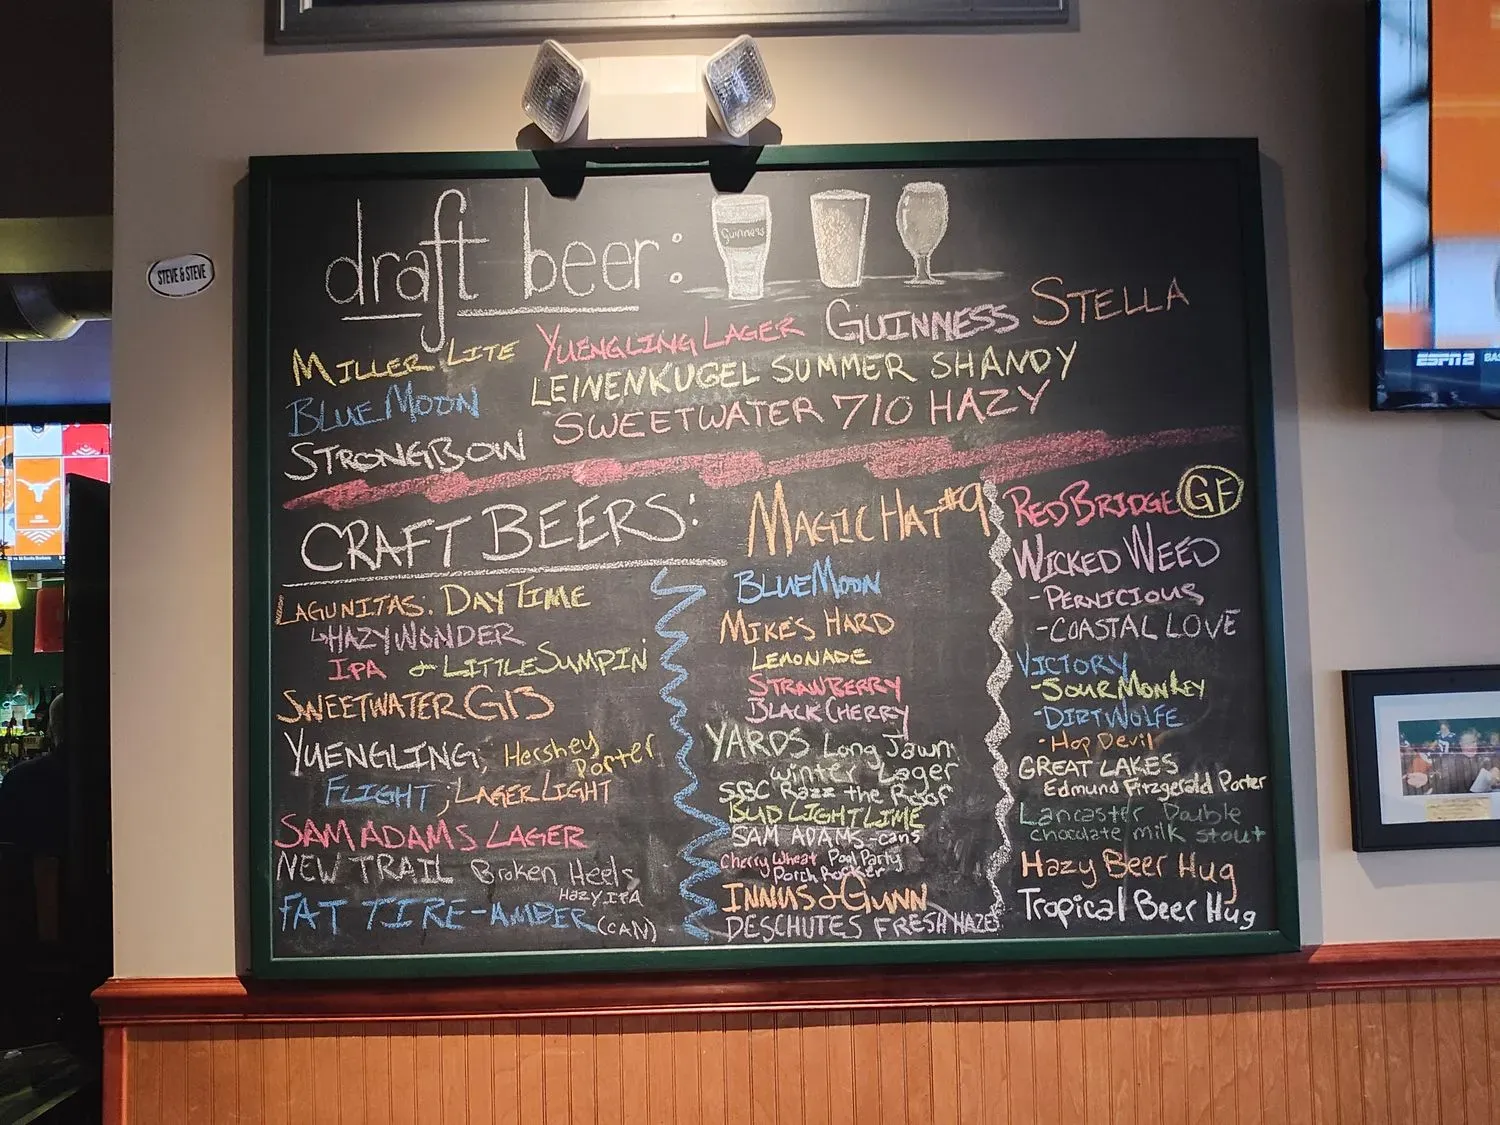 STEVE & STEVE
draft beer:
Guinness
MILLER LITE
YUENGLING LAGER
GUINNESS
STELLA
BLUE MOON
LEINENKUGEL SUMMER SHANDY
STRONGBOW
SWEETWATER 710 HAZY
CRAFT BEERS:
LAGUNITAS: DAY TIME
↳HAZY WONDER
IPA & LITTLE SUMPIN'
SWEETWATER G13
YUENGLING; Hershey
Porter
FLIGHT; LAGER LIGHT
SAM ADAMS LAGER
NEW TRAIL Broken Heels
HAZY IPA
FAT TIRE-AMBER (CAN)
MAGIC HAT #9
BLUE MOON
MIKE'S HARD
LEMONADE
STRAWBERRY
BLACK CHERRY
YARDS Long Jawn
winter Lager
SBC Razz the Roof
BUD LIGHT LIME
SAM ADAMS-cans
Cherry Wheat Pool Party
Porch Rocker
INNIS & GUNN
DESCHUTES FRESH HAZE
RED BRIDGE GF
WICKED WEED
-PERNICIOUS
-COASTAL LOVE
VICTORY
-SOUR MONKEY
-DIRT WOLFE
-Hop Devil
GREAT LAKES
Edmund Fitzgerald Porter
Lancaster Double
chocolate milk stout
Hazy Beer Hug
Tropical Beer Hug
ESPN2 BAS